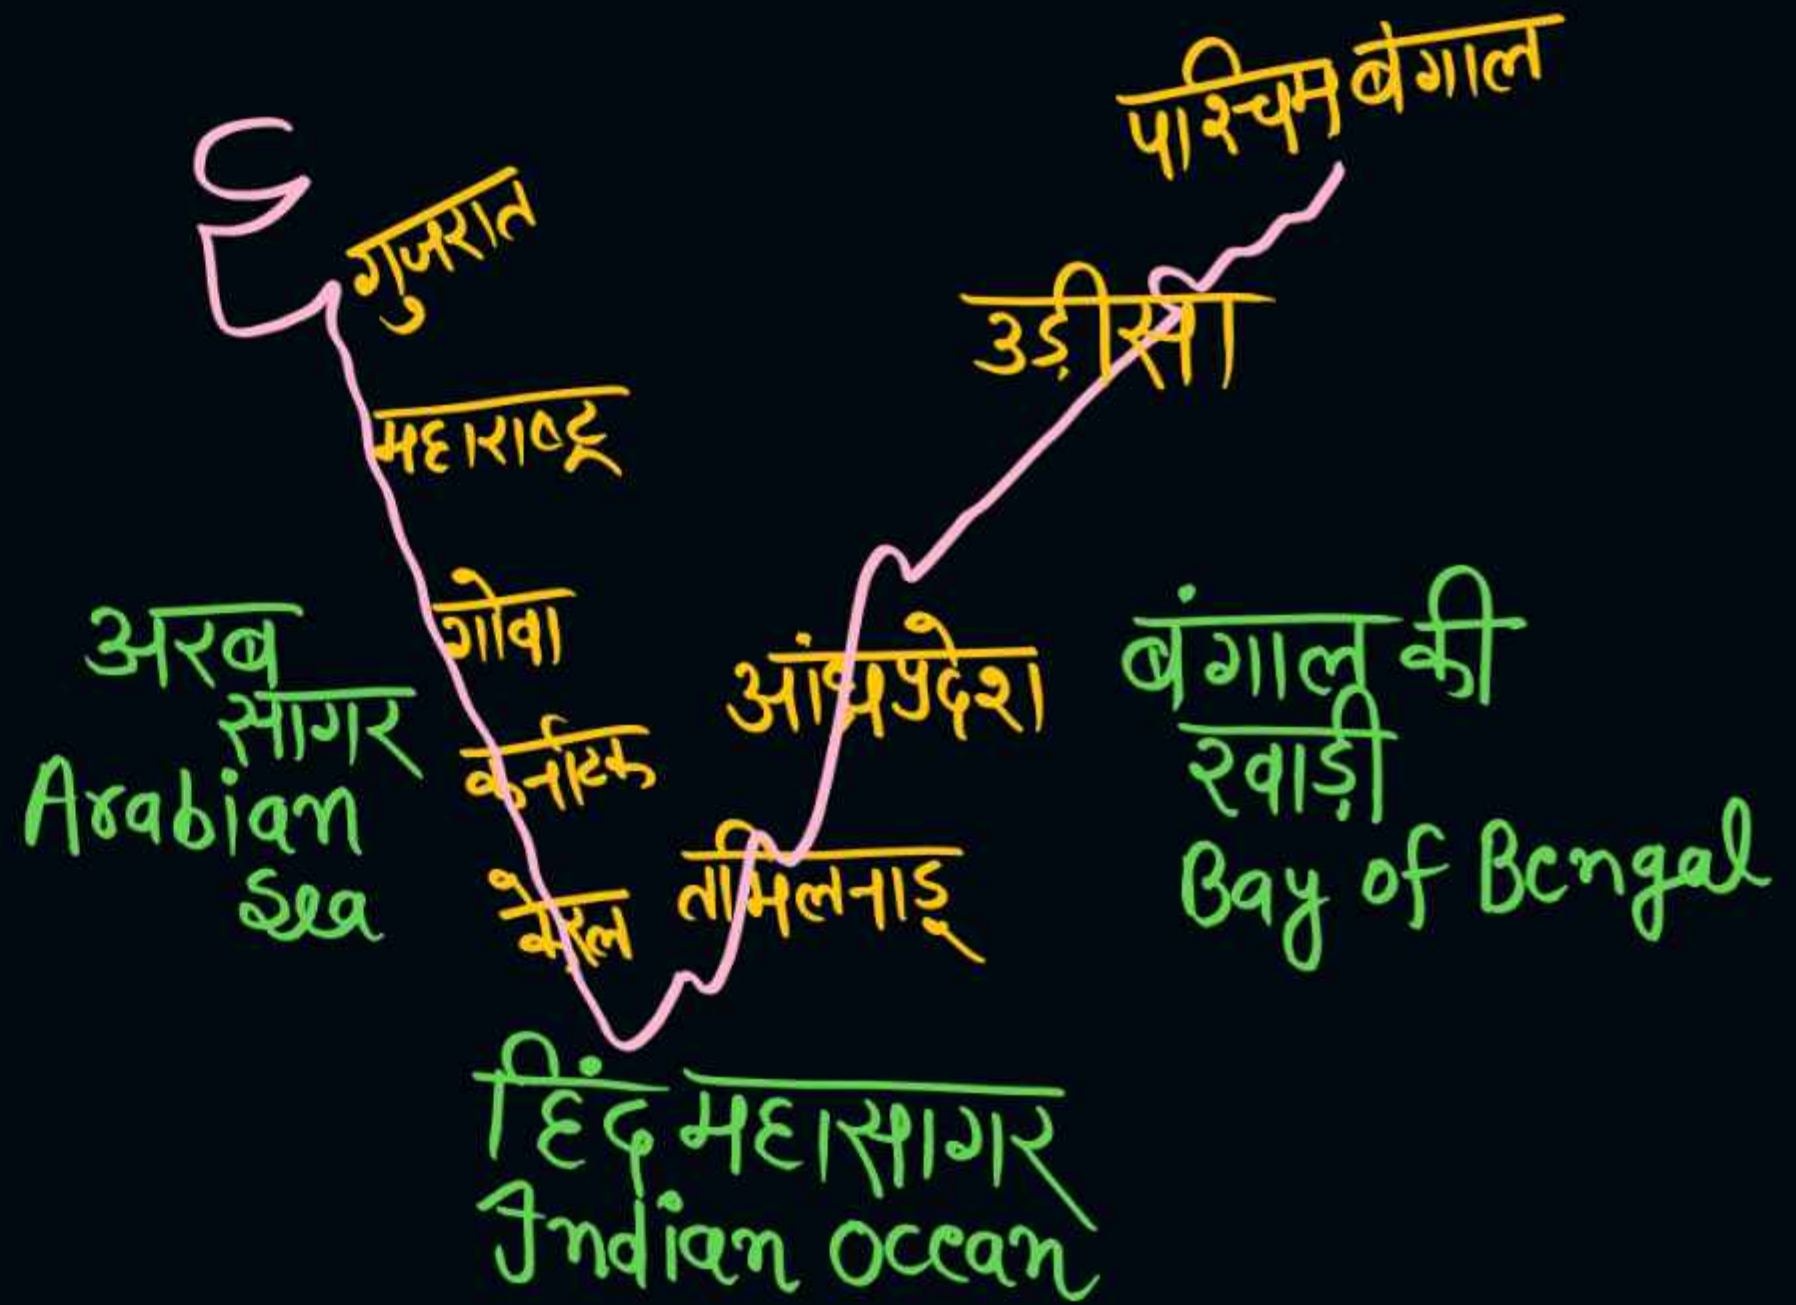 पश्चिम बंगाल
गुजरात
उड़ीसा
महाराष्ट्र
गोवा
अरब
सागर
Arabian
Sea
कर्नाटक
केरल
आंध्रप्रदेश
तमिलनाडू
बंगाल की
खाड़ी
Bay of Bengal
हिंद महासागर
Indian ocean